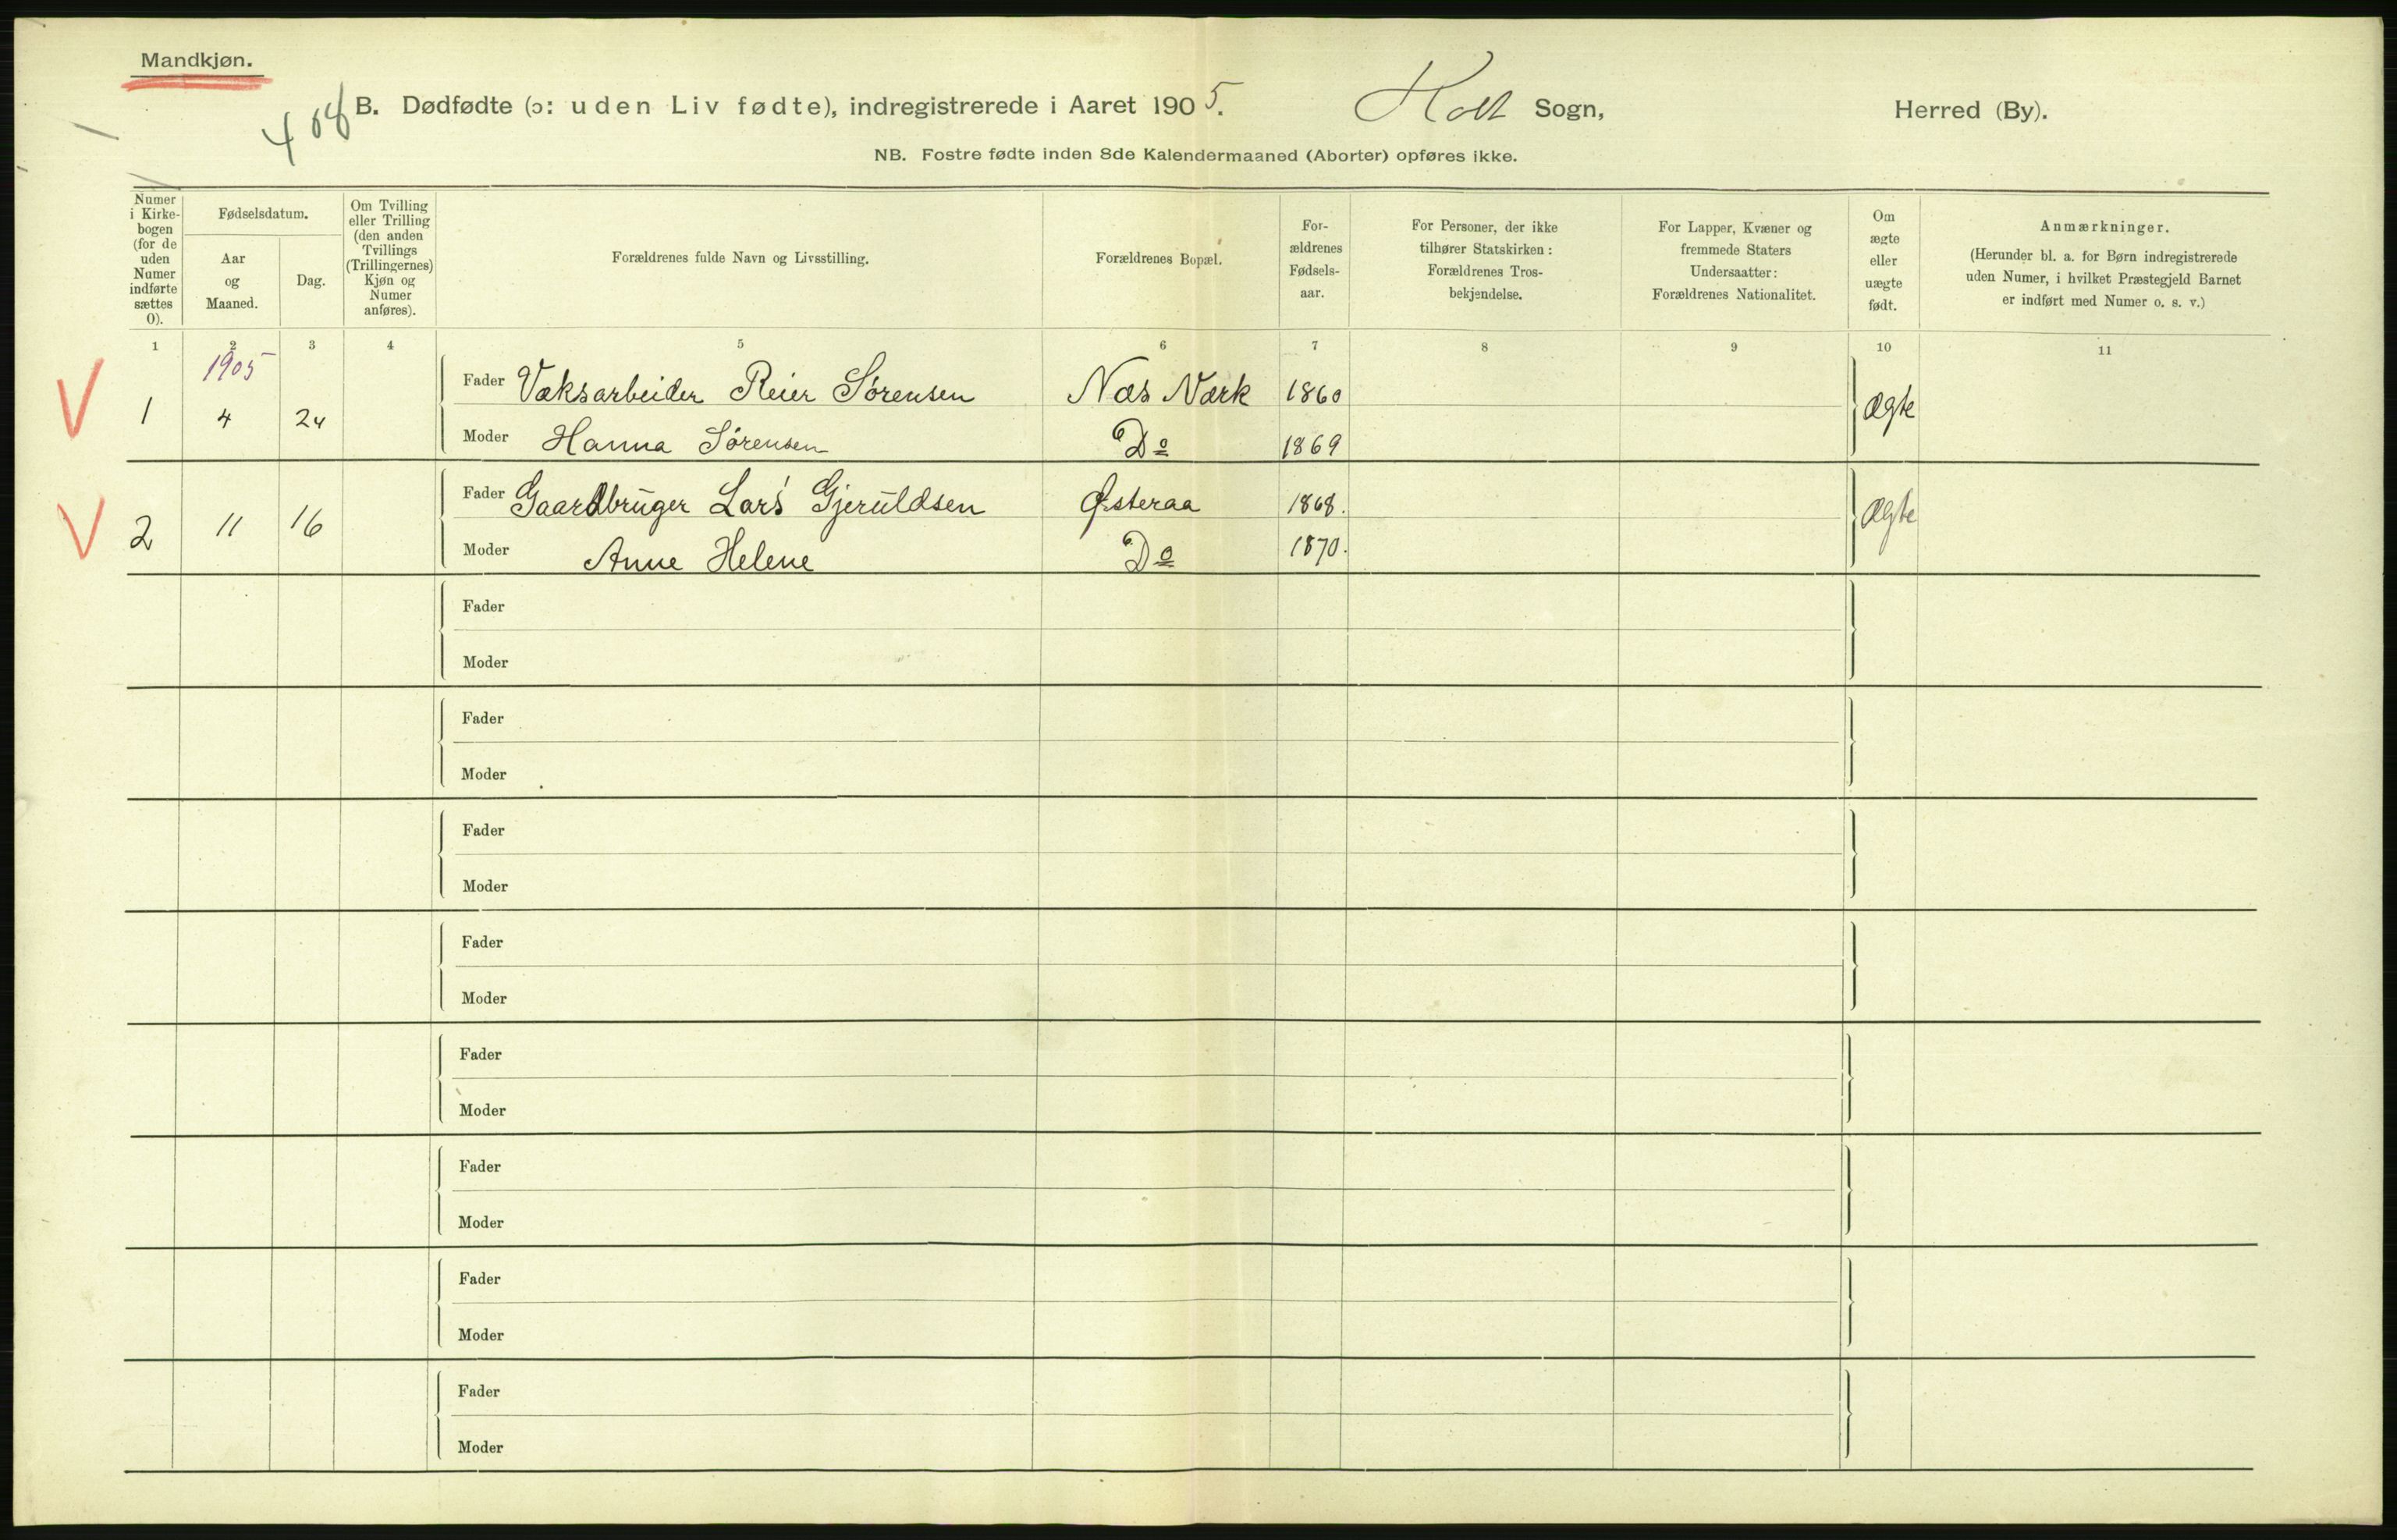 Mandkjøn.
408
B. Dødfødte (ɔ: uden Liv fødte), indregistrerede i Aaret 1905. Holt Sogn, Herred (By).
NB. Fostre fødte inden 8de Kalendermaaned (Aborter) opføres ikke.
Numer i Kirke-bogen (for de uden Numer indførte sættes 0).
Fødselsdatum.
Aar og Maaned.
Dag.
Om Tvilling eller Trilling (den anden Tvillings (Trillingernes) Kjøn og Numer anføres).
Forældrenes fulde Navn og Livsstilling.
Forældrenes Bopæl.
For-ældrenes Fødsels-aar.
For Personer, der ikke tilhører Statskirken: Forældrenes Tros-bekjendelse.
For Lapper, Kvæner og fremmede Staters Undersaatter: Forældrenes Nationalitet.
Om ægte eller uægte født.
Anmærkninger.
(Herunder bl. a. for Børn indregistrerede uden Numer, i hvilket Præstegjeld Barnet er indført med Numer o. s. v.)
1 2 3 4 5 6 7 8 9 10 11
1905
V 1 4 24 Fader Væksarbeider Reier Sørensen Næs Værk 1860 Ægte
Moder Hanna Sørensen Do 1869
V 2 11 16 Fader Gaardbruger Lars Gjeruldsen Østeraa 1868. Ægte
Moder Anne Helene Do 1870.
Fader
Moder
Fader
Moder
Fader
Moder
Fader
Moder
Fader
Moder
Fader
Moder
Fader
Moder
Fader
Moder